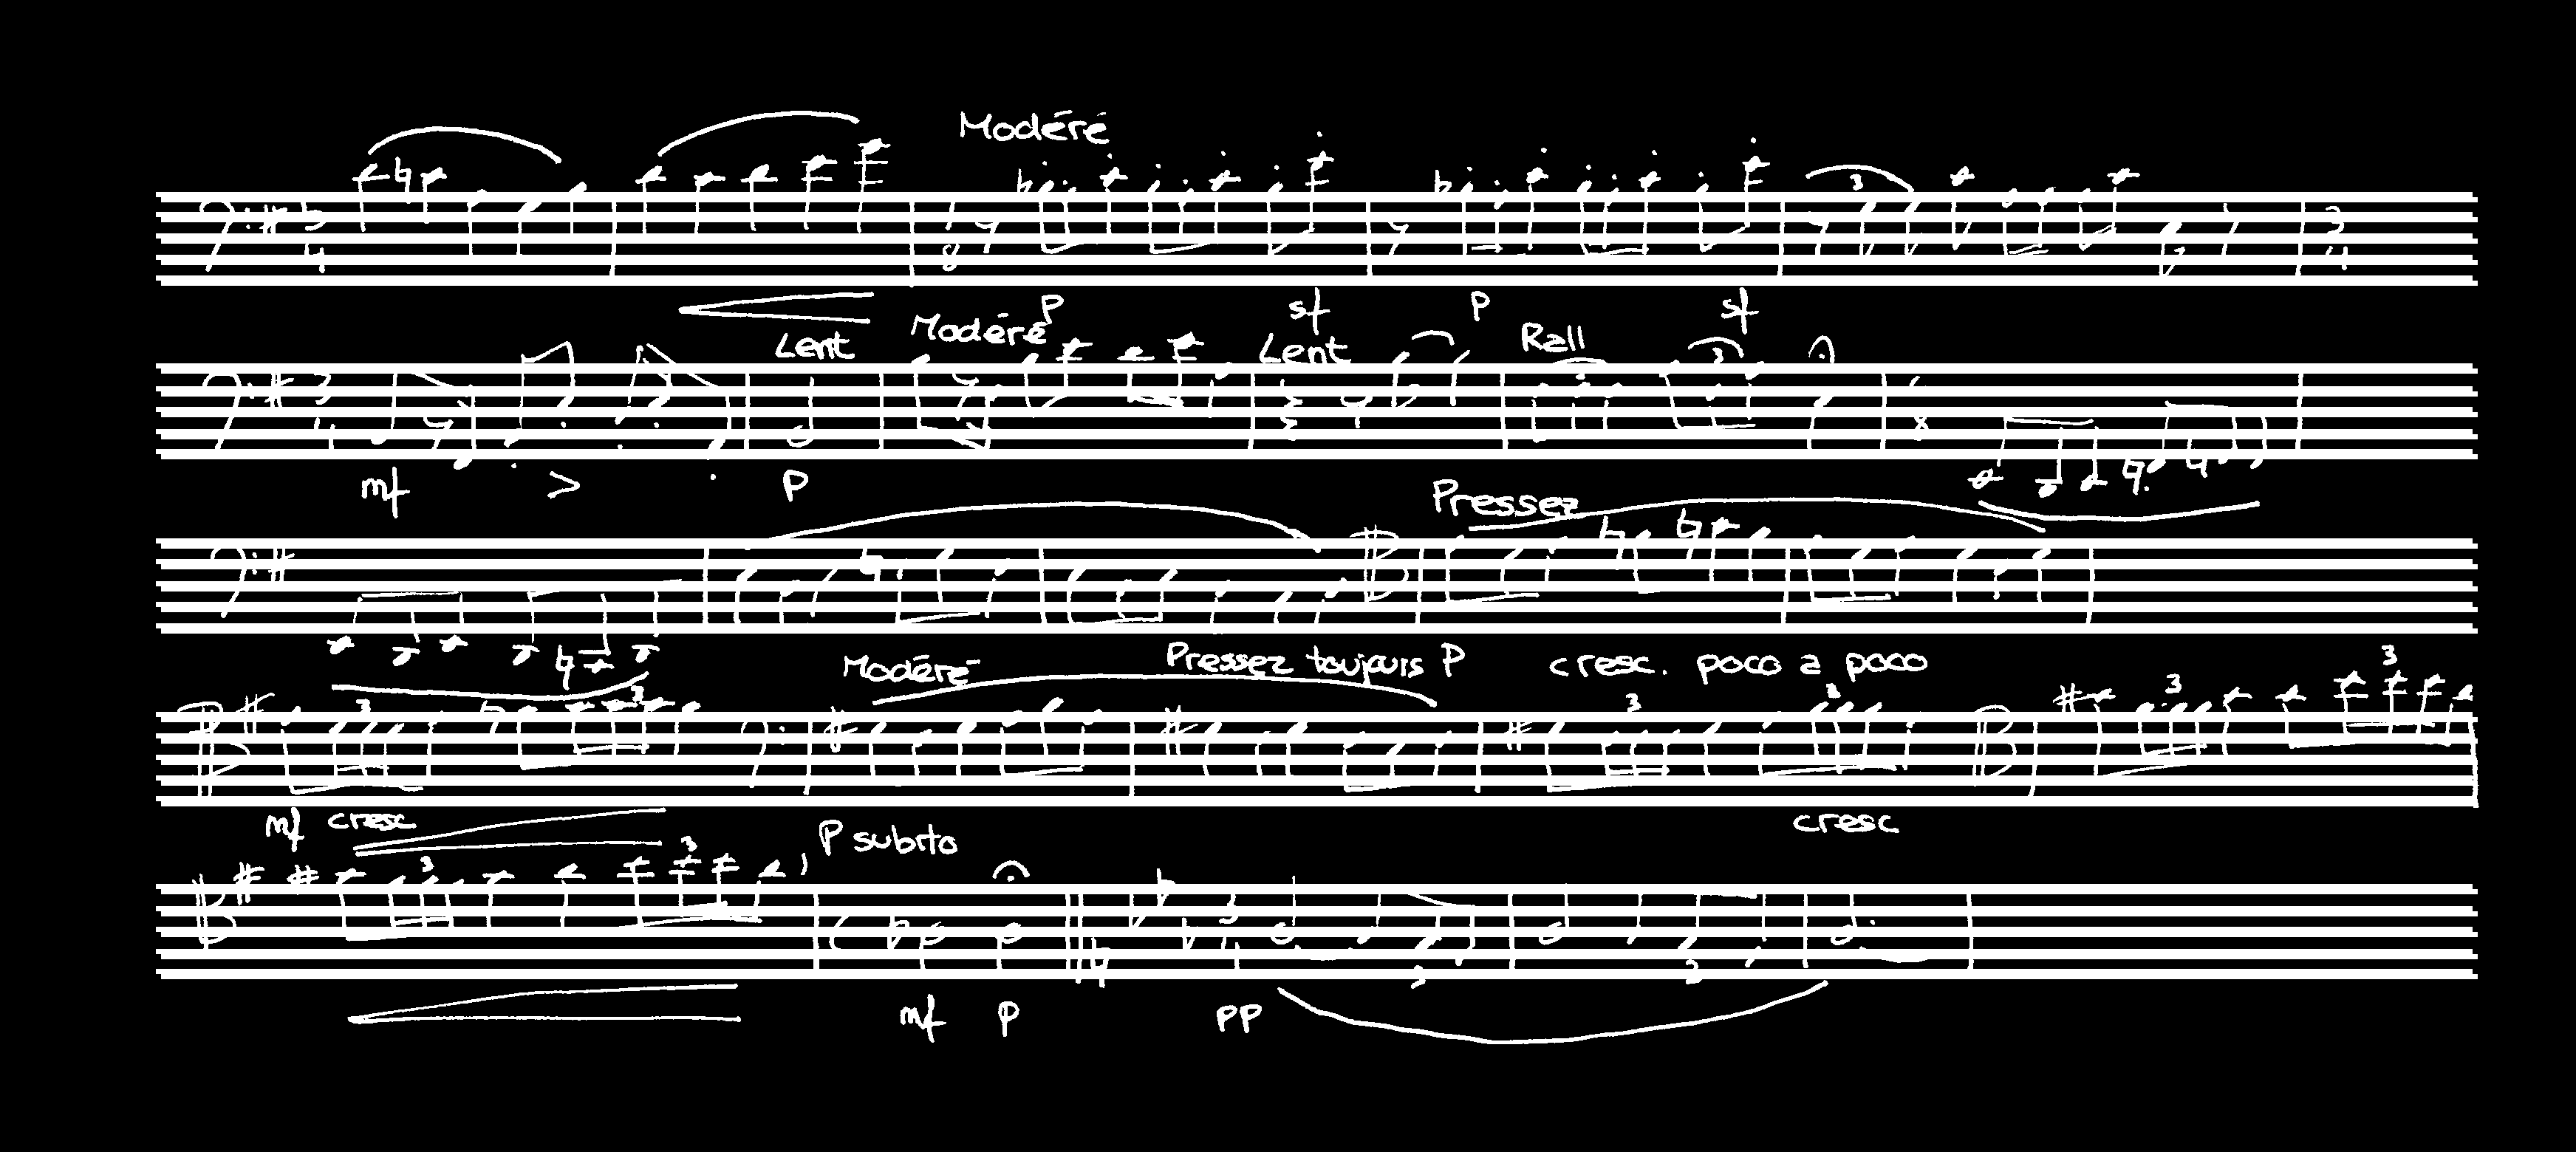 Modéré
p sf p sf
Lent Modéré Lent Rall
mf p
Pressez
Modéré Pressez toujours P cresc. poco a poco
mf cresc cresc
P subito
mf p pp